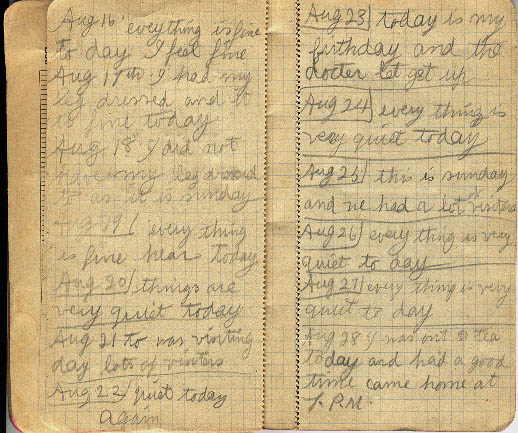 Aug 16 everything is fine
to day I feel fine
Aug 17th I had my
leg dressed and it
is fine today
Aug 18 I did not
have my leg dressed
as it is sunday
Aug 19/ every thing
is fine hear today
Aug 20/ things are
very quiet today
Aug 21 To was visiting
day lots of visiters
Aug 22/ quiet today
again
Aug 23/ today is my
birthday and the
docter let get up
Aug 24/ every thing is
very quiet today
Aug 25/ this is sunday
and we had a lot visiters
Aug 26/ every thing is very
quiet to day
Aug 27/ every thing is very
quiet to day
Aug 28 I was out to tea
today and had a good
time came home at
P.M.